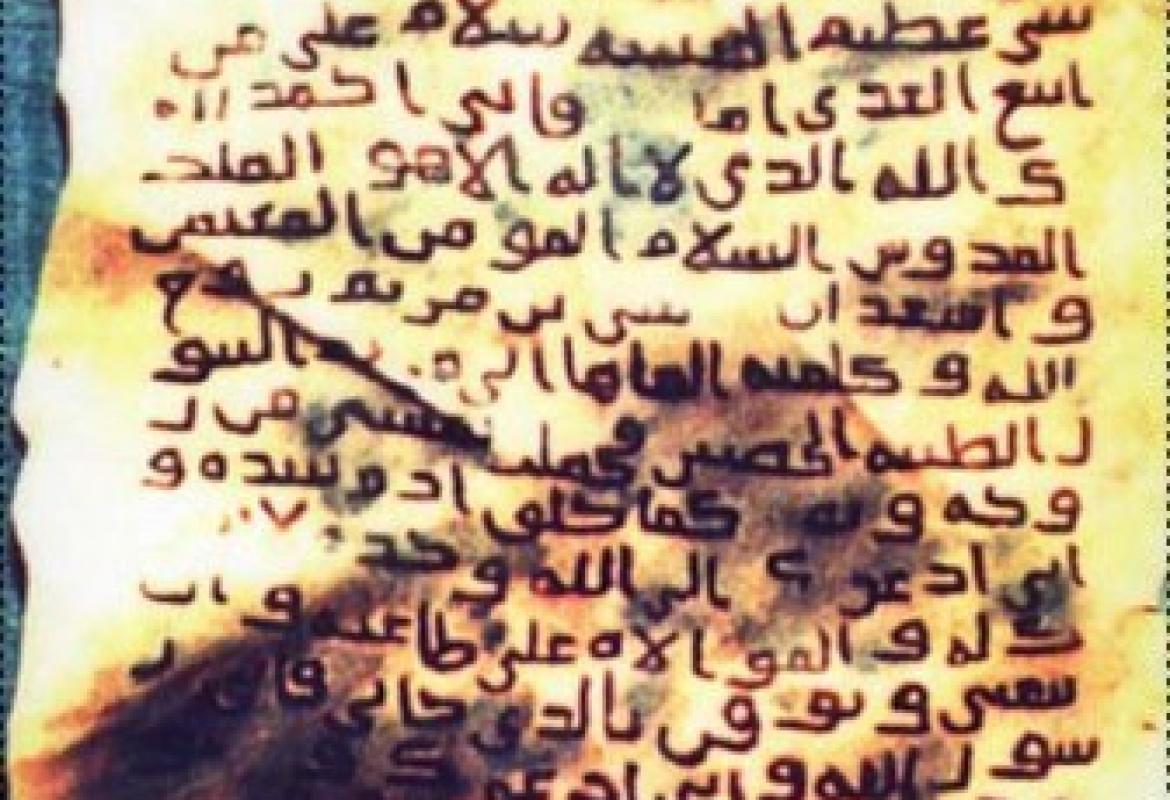 شي عظيم الحبشه سلام على من
اتبع الهدى اما فاني احمد اليه
ك الله الذي لا اله الا هو الملك
القدوس السلام المومن المهيمن
و اشهد ان عيسى بن مريم روح
الله و كلمته القاها الى البتو
ل الطيبه الحصينه فحملت بعيسى من ر
وحه و كما خلق ادم بيده و
اني ادعوك الى الله وحده لا
شريك له و الموالاه على طاعته و ان
تتبعني و توقن بالذي جاني فاني ر
سول الله و اني ادعوك و